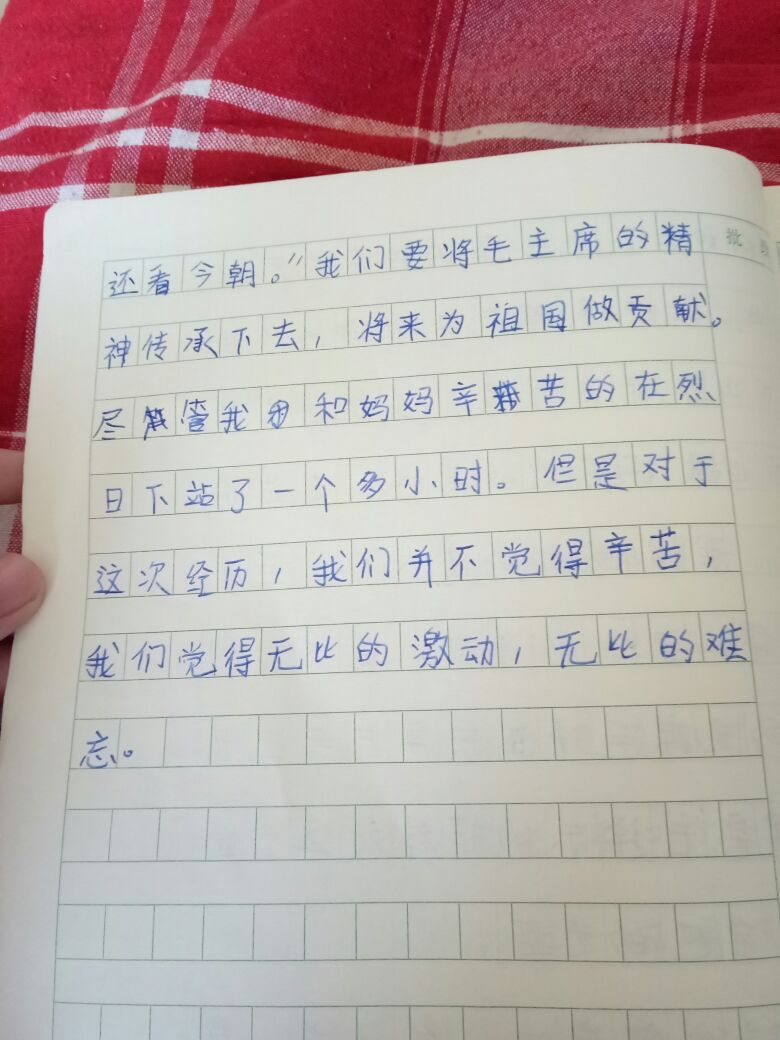 批
还看今朝。”我们要将毛主席的精
神传承下去，将来为祖国做贡献。
尽管我和妈妈辛苦的在烈
日下站了一个多小时。但是对于
这次经历，我们并不觉得辛苦，
我们觉得无比的激动，无比的难
忘。